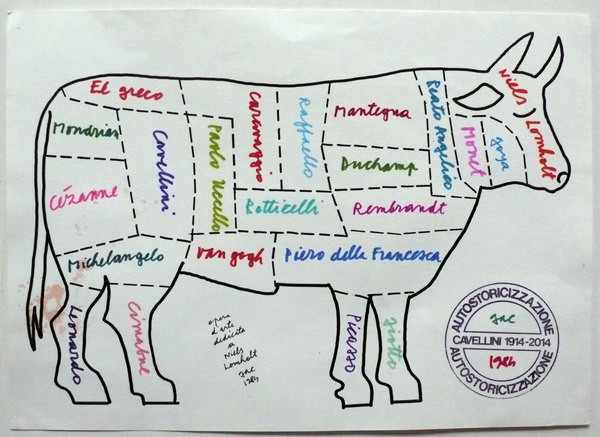 El greco
Mondrian
Cézanne
Cavellini
Paolo Uccello
Caravaggio
Raffaello
Botticelli
Mantegna
Duchamp
Rembrandt
Beato Angelico
Monet
goya
Niels Lomholt
Michelangelo
Van gogh
Piero della Francesca
Leonardo
Cimabue
Picasso
giotto
opera
d'arte
dedicata
a
Niels
Lomholt
gac
1984
AUTOSTORICIZZAZIONE
gac
CAVELLINI 1914-2014
1984
AUTOSTORICIZZAZIONE